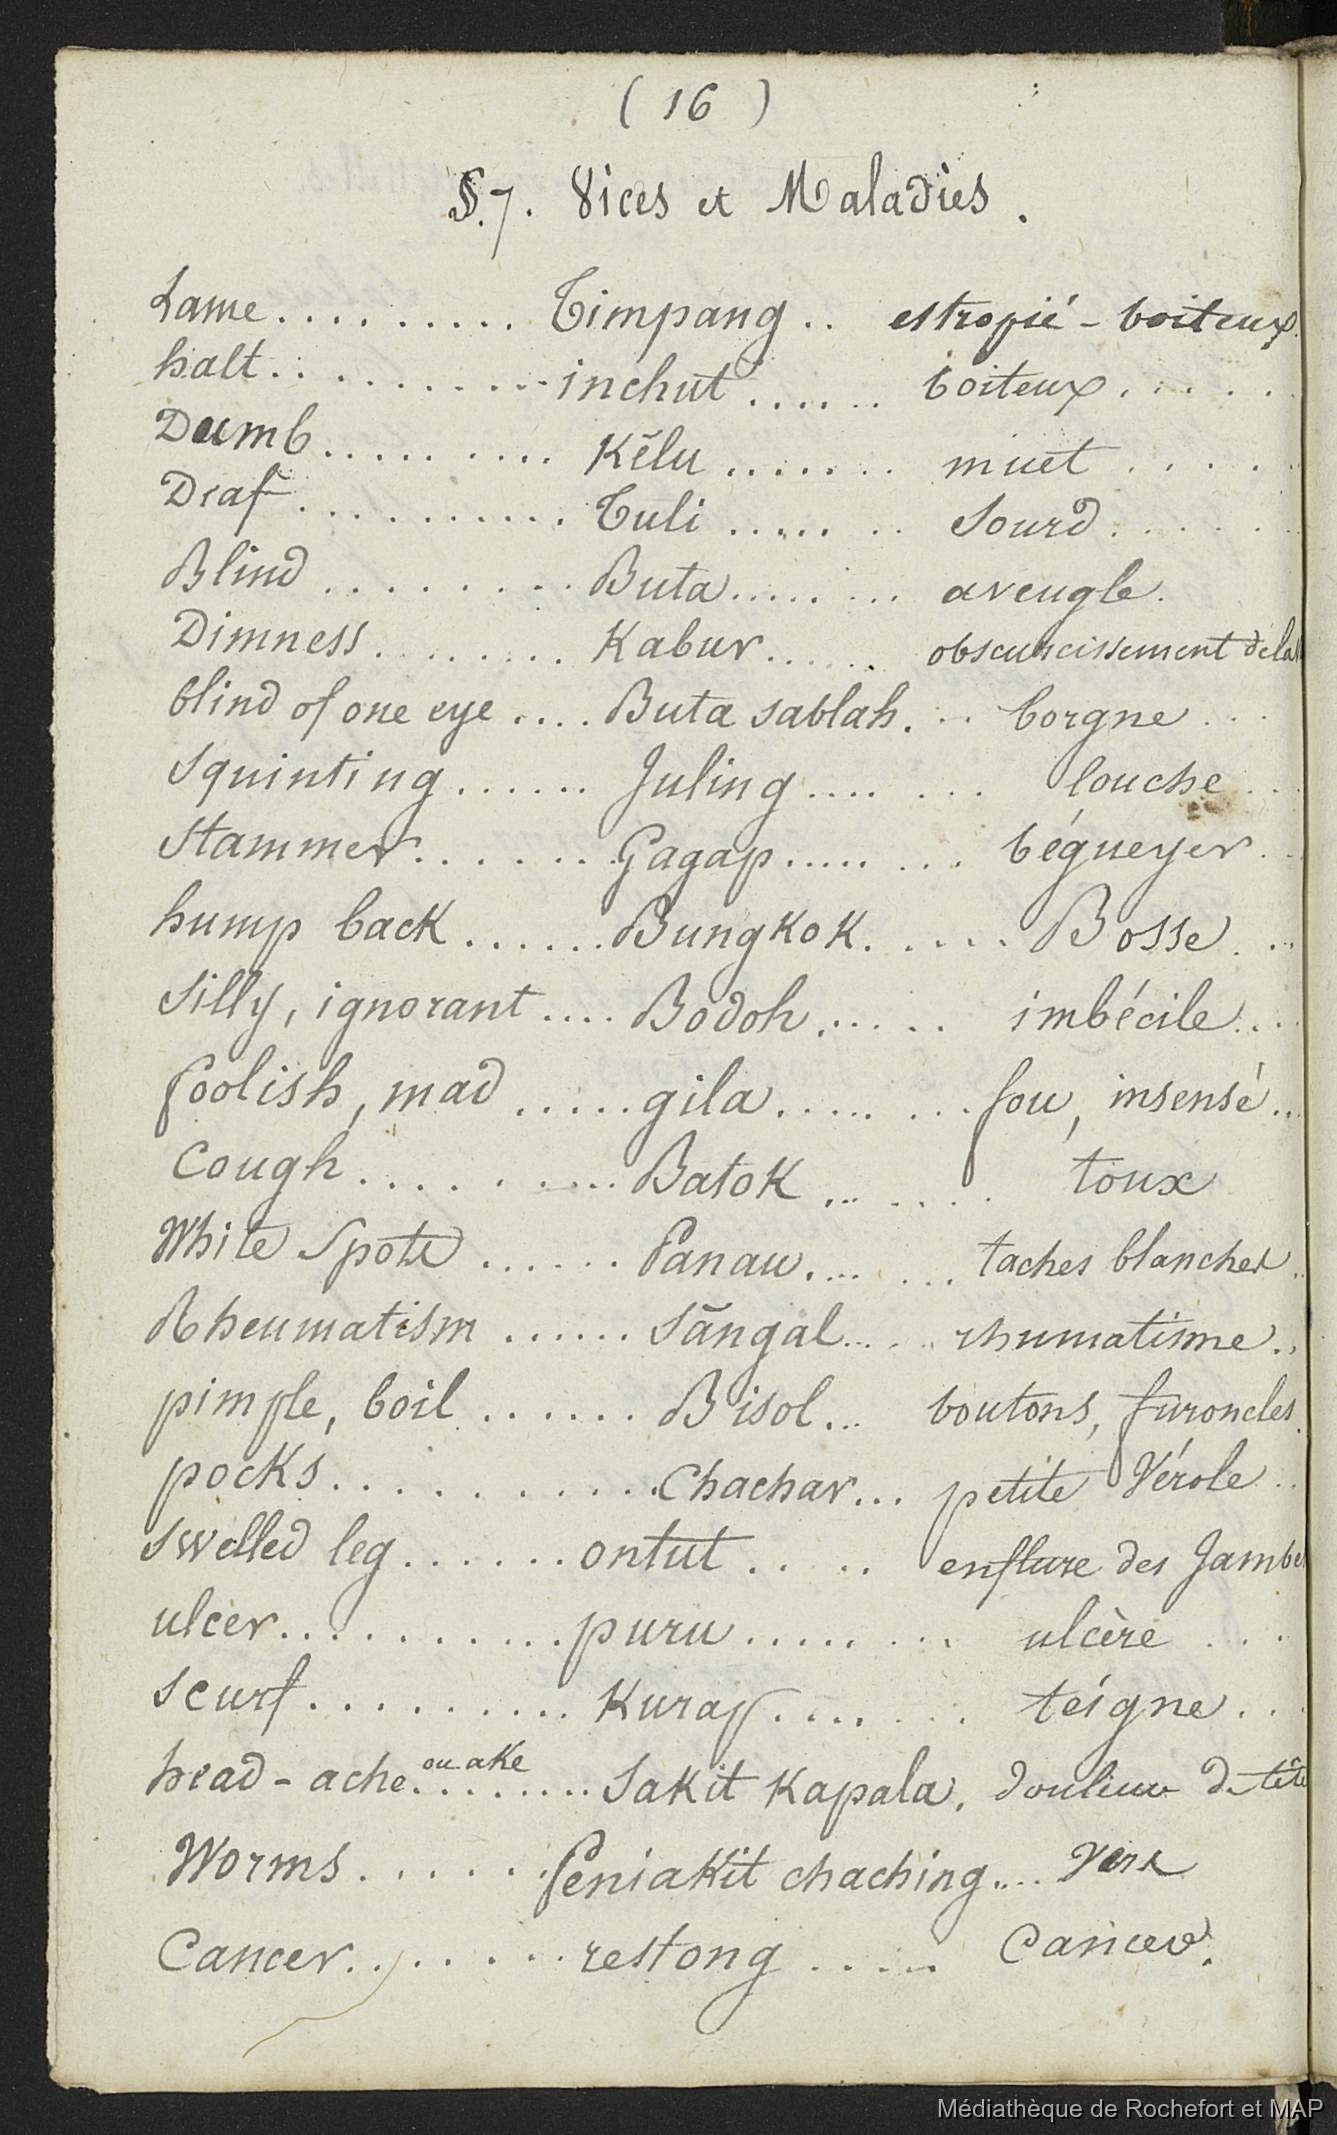 ( 16 )
§. 7. Vices et Maladies.
Lame.......... Timpang.. estropié - boiteux.
halt........... inchut...... boiteux.....
Dumb......... Kĕlu....... muet.....
Deaf........... Tuli....... Sourd......
Blind......... Buta........ aveugle.
Dimness........ Kabur...... obscurcissement de la
blind of one eye.... Buta sablah... borgne...
Squinting...... Juling....... louche...
Stammer....... Gagap........ bégueyer..
hump back...... Bungkok..... Bosse...
Silly, ignorant.... Bodoh...... imbécile...
foolish, mad..... gila........ fou, insensé..
Cough......... Batok....... toux
White Spots...... Panau....... taches blanches..
Rheumatism...... Sāngal..... rhumatisme..
pimple, boil....... Bisol... boutons, furoncles.
pocks........... Chachar... petite Vérole..
Swelled leg....... ontut..... enflure des Jambes
ulcer........... puru........ ulcère...
scurf.......... Kurap....... teigne..
head-ache ou ake........ Sakit Kapala. douleur de tête
Worms...... Peniakit chaching.... Vers
Cancer........ restong..... Cancer.
Médiathèque de Rochefort et MAP